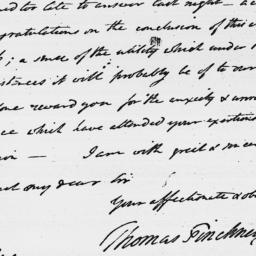 too late to answer last night - a
gratulations on the conclusion of this
; a sense of the utility which under
stances it will probably be of to our
one reward you for the anxiety &
ce which have attended your exertions
ion - I am with great & sincere
my dear Sir
Your affectionate & ob
Thomas Pinckney